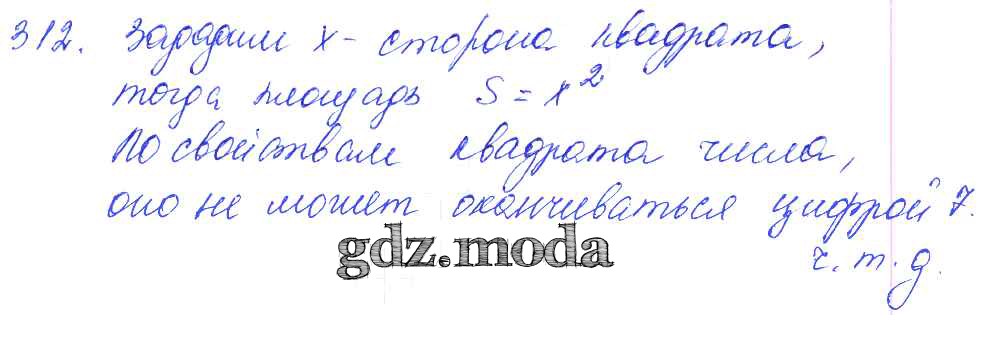 312. Зададим x - сторона квадрата,
тогда площадь S = x²
По свойствам квадрата числа,
оно не может оканчиваться цифрой 7.
gdz.moda
ч.т.д.